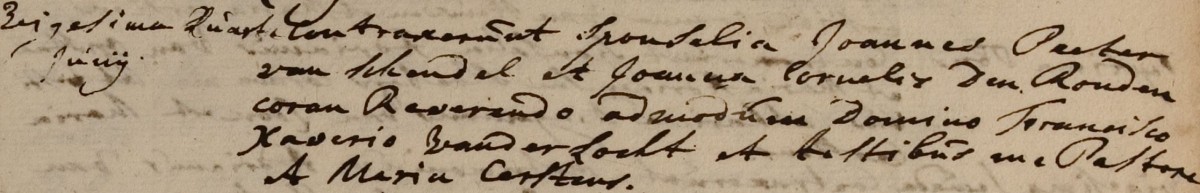 Vigesima Quarta Contraxerunt Sponsalia Joannes Peeter
Junij. van Schendel et Joanna Cornelis Den Ronden
coram Reverendo admodum Domino Francisco
Xaverio Vander Locht et testibus me Pastore
et Maria Carstens.